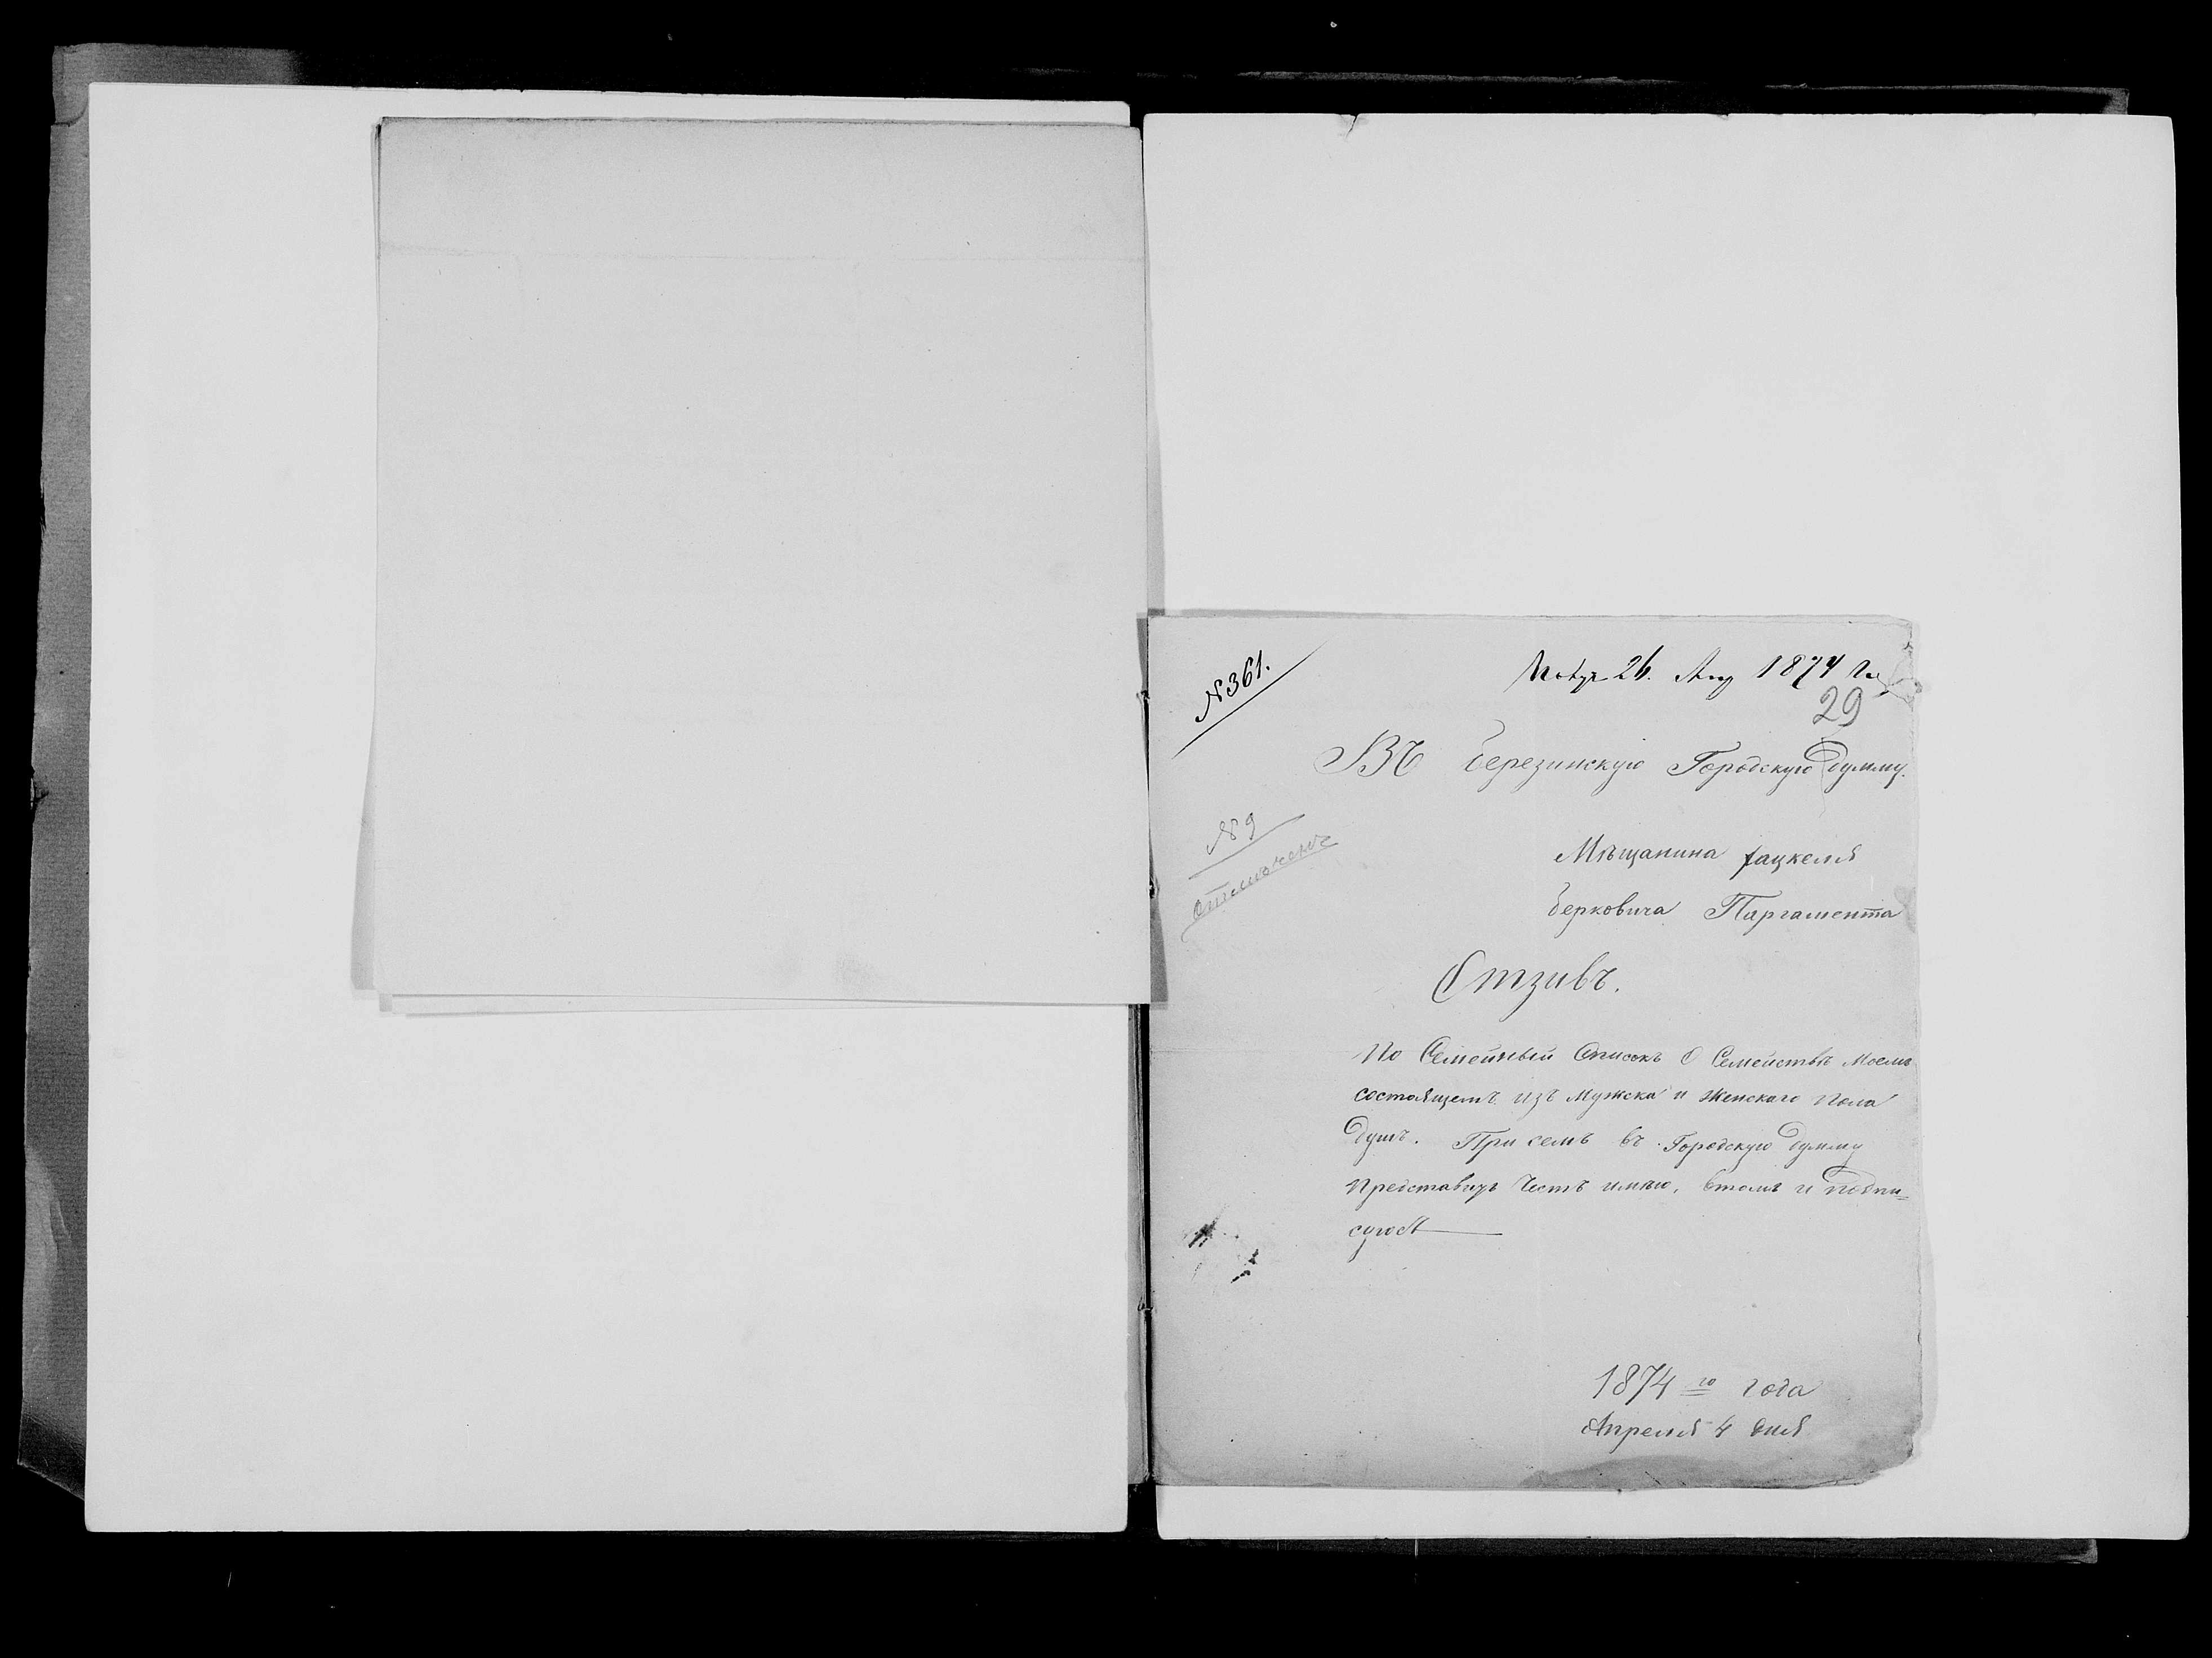 № 361.
Получ 26. Апр 1874 Го
29
Въ Березинскую Городскую Думму.
№ 9
Мѣщанина Хацкеля
Берковича Паргамента
Отзивъ.
По Семейный Список О Семействѣ Моемъ
состоящемъ изъ Мужска и Женскаго пола
Душъ. При семъ въ Городскую Думму
Представить Честь имѣю, втомъ и подпи=
суюсь
1874 го года
Апреля 4 дня